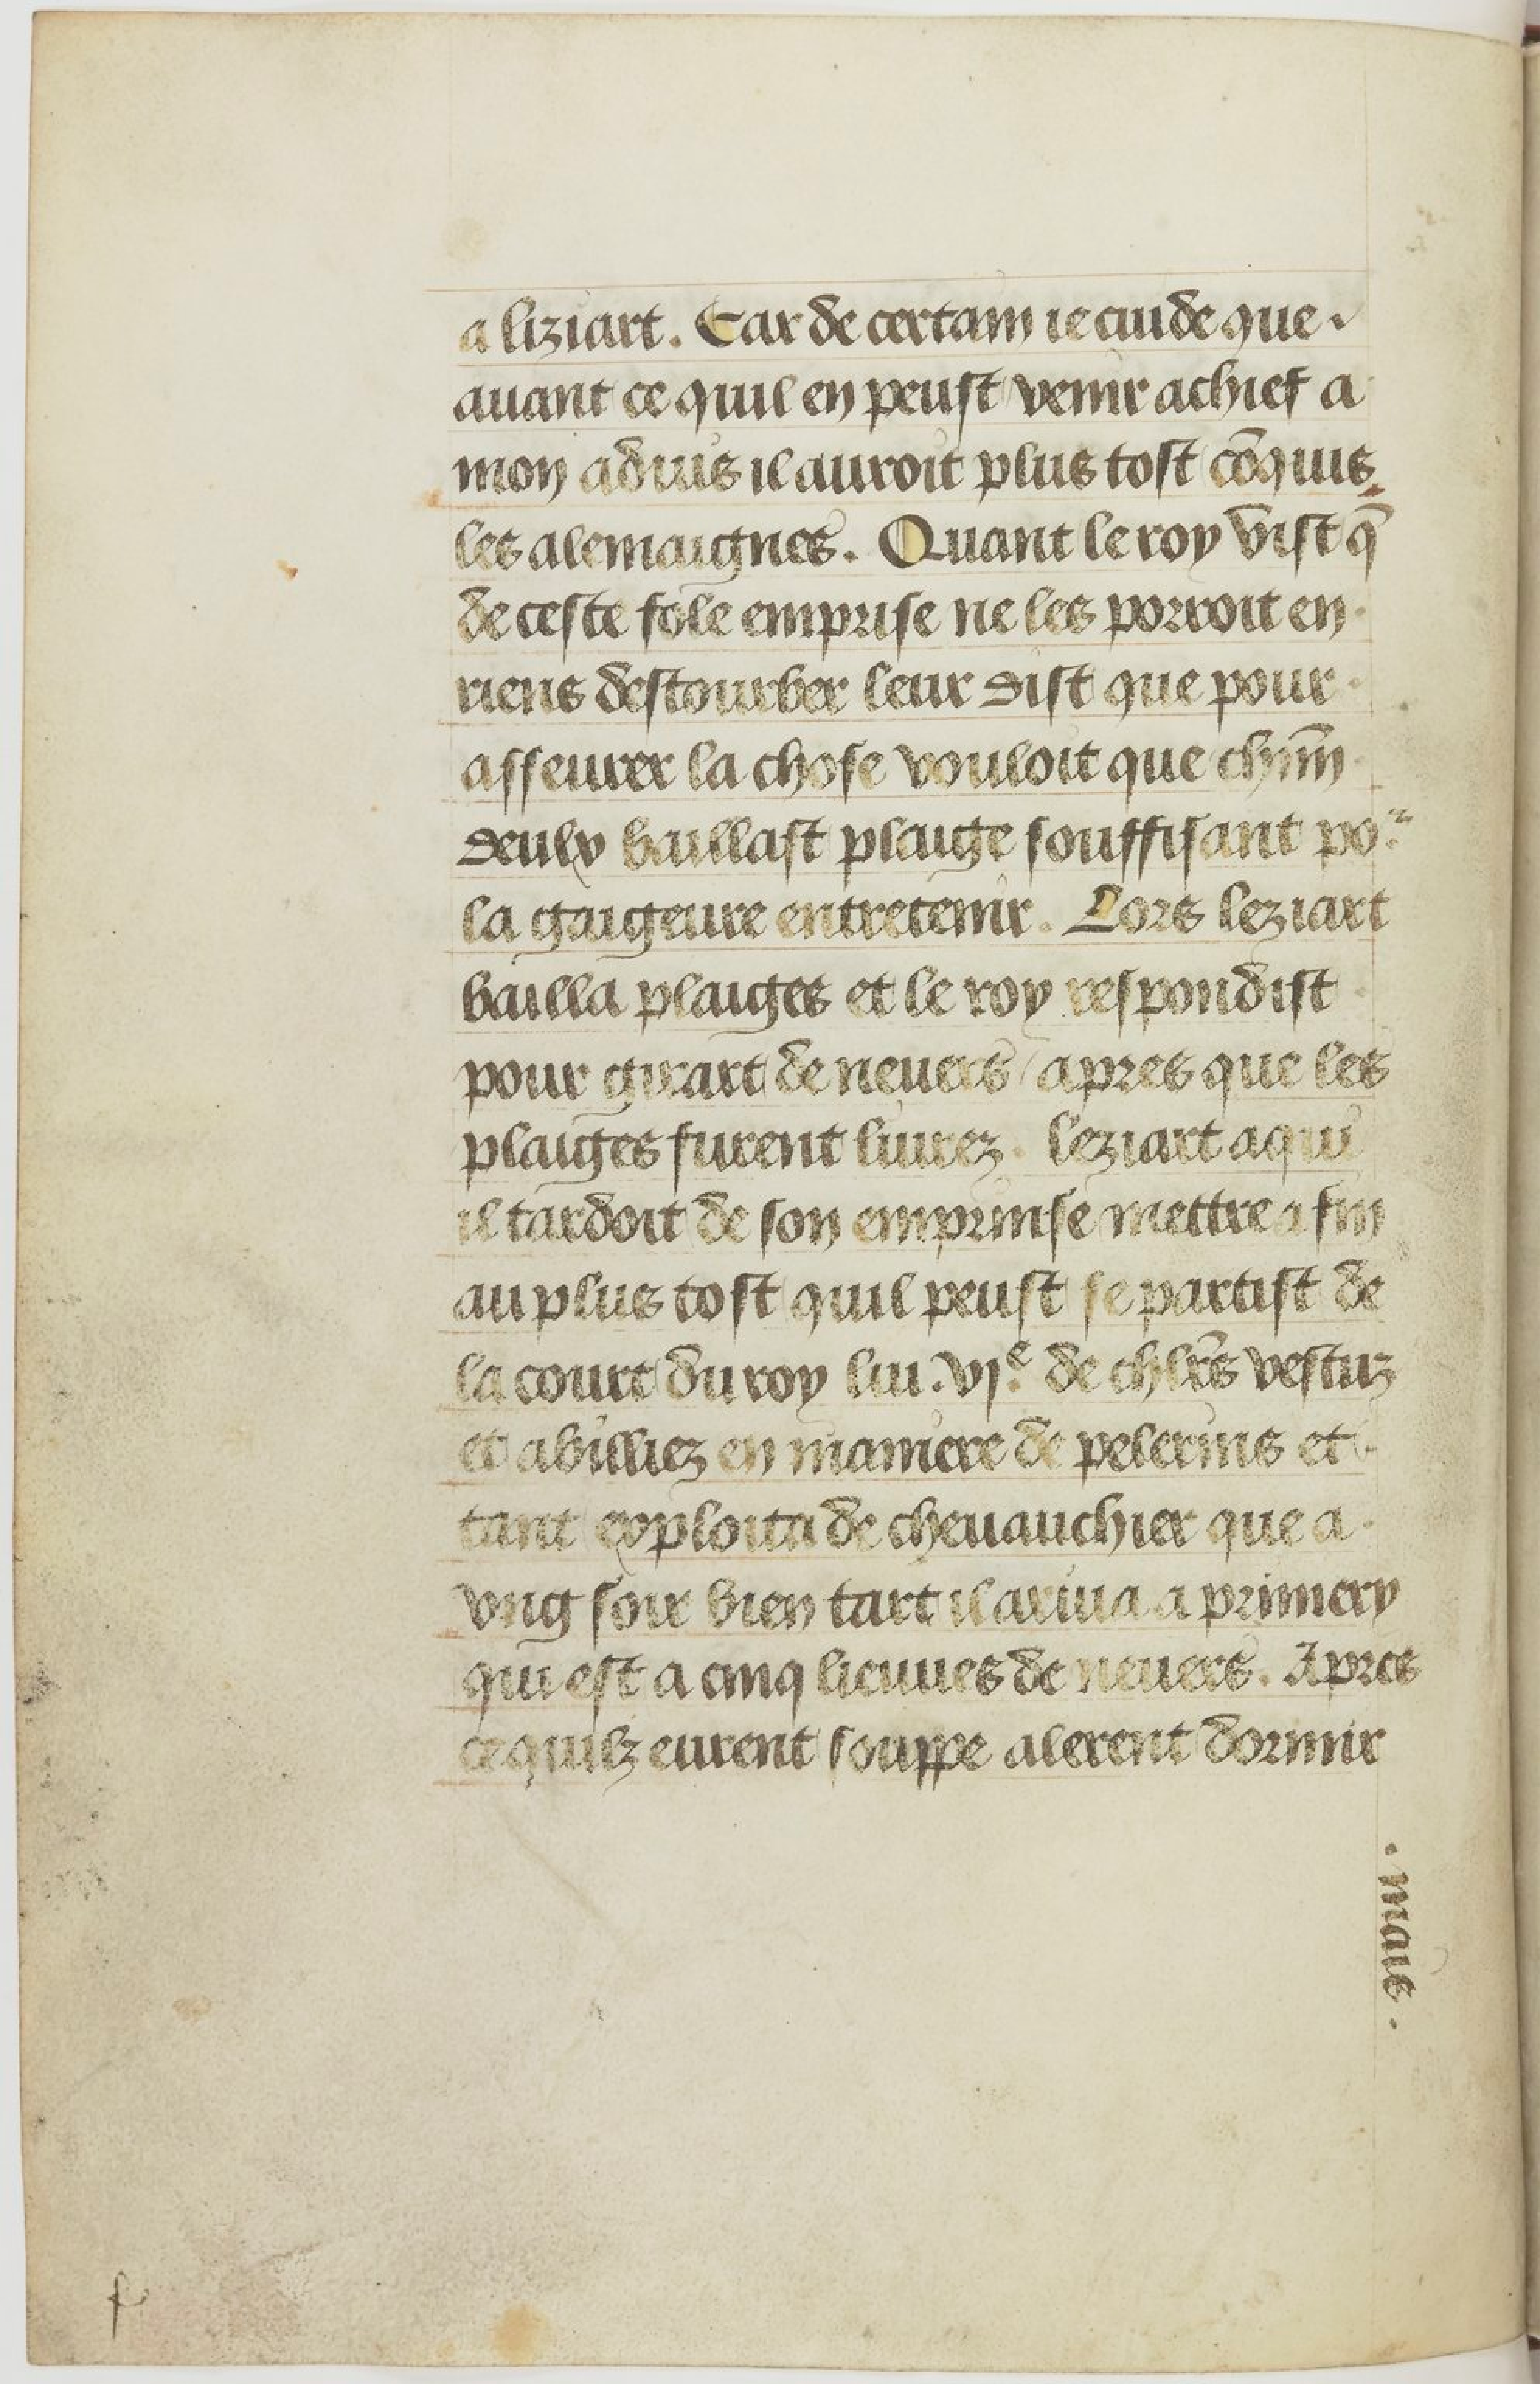 a liziart. Car de certain ie cuide que
auant ce quil en peust venir achief a
mon aduis il auroit plus tost cōquis
les alemaignes. Quant le roy vist q̄
de ceste fole emprise ne les porroit en
riens destourber leur dist que pour
asseurer la chose vouloit que chūn
deulx baillast plaige souffisant po.ʳ
la gaigeure entretenir. Lors leziart
bailla plaiges et le roy respondist
pour girart de neuers / apres que les
plaiges furent liurez. leziart a qui
il tardoit de son emprinse mettre a fin
au plus tost quil peust se partist de
la court du roy lui .vjᵉ. de chlr̄s vestuz
et abilliez en maniere de pelerins et
tant exploita de cheuauchier que a
vng soir bien tart il ariua a primery
qui est a cinq lieuues de neuers. Apres
ce quilz eurent souppe alerent dormir
. mais .
f